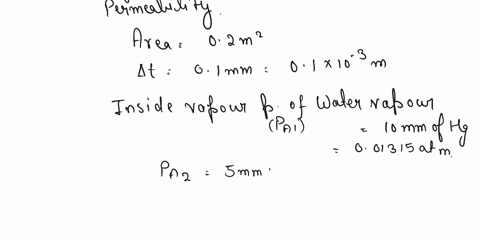 Permeability.
Area = 0.2 m²
Δt = 0.1 mm = 0.1 × 10⁻³ m
Inside vapour p. of Water vapour
(PA1) = 10 mm of Hg
= 0.01315 atm
PA2 = 5 mm.